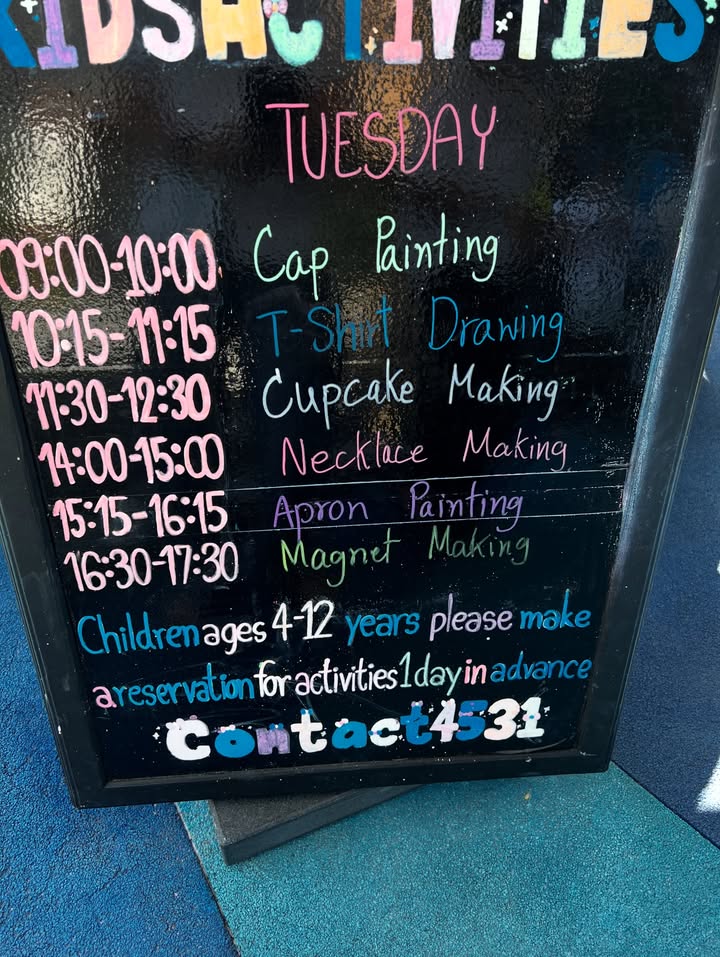 KIDS ACTIVITIES
TUESDAY
09:00-10:00 Cap Painting
10:15-11:15 T-Shirt Drawing
11:30-12:30 Cupcake Making
14:00-15:00 Necklace Making
15:15-16:15 Apron Painting
16:30-17:30 Magnet Making
Children ages 4-12 years please make
a reservation for activities 1 day in advance
Contact 4531